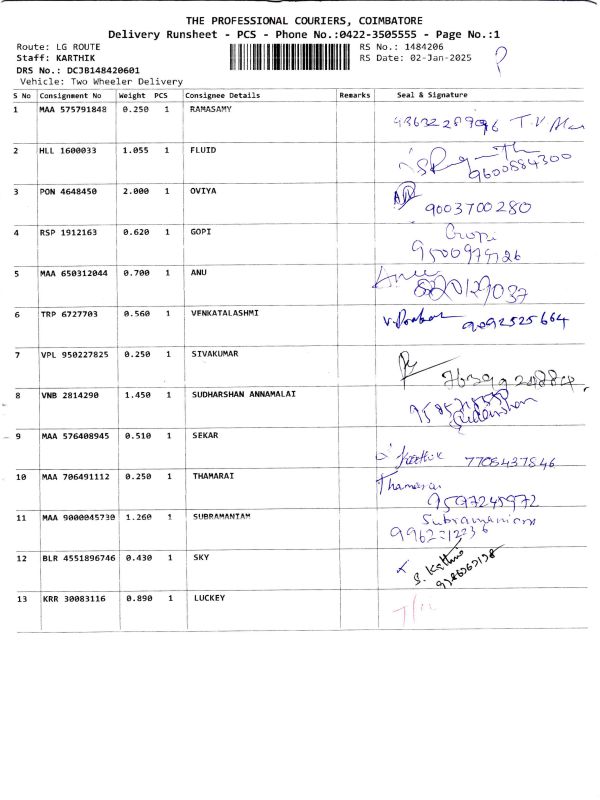 THE PROFESSIONAL COURIERS, COIMBATORE
Delivery Runsheet - PCS - Phone No.:0422-3505555 - Page No.:1
Route: LG ROUTE RS No.: 1484206
Staff: KARTHIK RS Date: 02-Jan-2025
DRS No.: DCJB148420601
Vehicle: Two Wheeler Delivery
S No Consignment No Weight PCS Consignee Details Remarks Seal & Signature
1 MAA 575791848 0.250 1 RAMASAMY
2 HLL 1600033 1.055 1 FLUID
9600584300
3 PON 4648450 2.000 1 OVIYA
9003700280
4 RSP 1912163 0.620 1 GOPI Gopi
5 MAA 650312044 0.700 1 ANU Anu
6 TRP 6727703 0.560 1 VENKATALASHMI
9092525664
7 VPL 950227825 0.250 1 SIVAKUMAR
8 VNB 2814290 1.450 1 SUDHARSHAN ANNAMALAI
9 MAA 576408945 0.510 1 SEKAR
Karthik 7708437846
10 MAA 706491112 0.250 1 THAMARAI Thamarai
9597245972
11 MAA 9000045730 1.260 1 SUBRAMANIAM Subramaniam
12 BLR 4551896746 0.430 1 SKY
13 KRR 30083116 0.890 1 LUCKEY